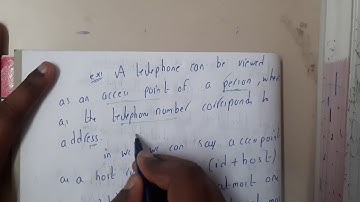 ex: A telephone can be viewed
as an access point of a person, wher
as the telephone number corresponds to
address.
in we can say access point
as a host (id + host)
at most one